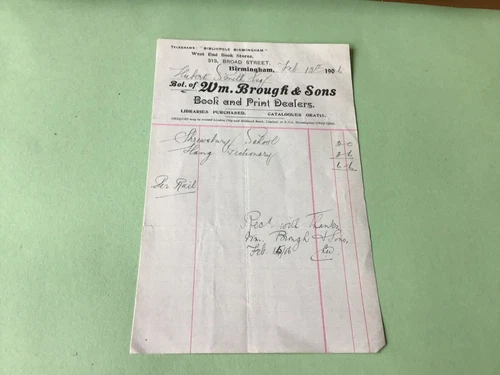 TELEGRAMS: "BIBLIOPOLE BIRMINGHAM."
West End Book Stores,
312, BROAD STREET,
Birmingham, Feb 13th 1906
Hubert Smith Esq
Bot. of Wm. Brough & Sons
Book and Print Dealers.
LIBRARIES PURCHASED. CATALOGUES GRATIS.
Shrewsbury School
Slang Dictionary
Per Rail
Recd with Thanks
Wm. Brough & Sons,
Feb. 15/06